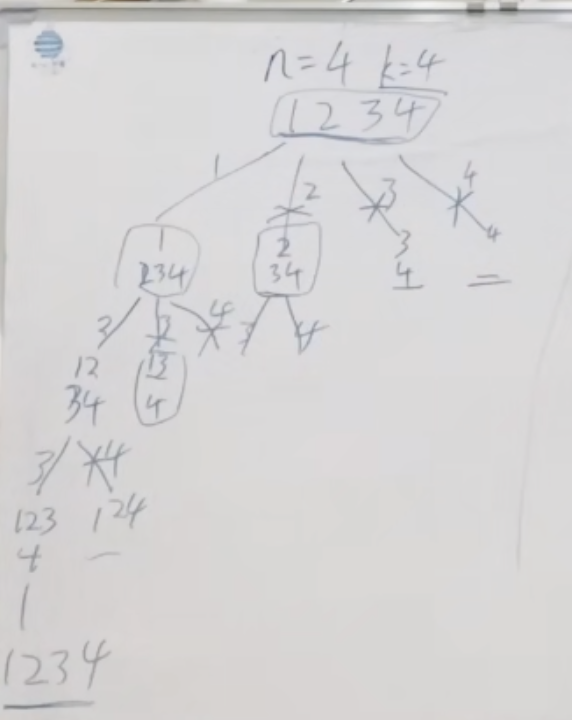 n=4 k=4
1 2 3 4
1 2 3 4
1 2 3
234 34 4
3 3 4 3 4
12 13
34 4
3 4
123 124
4
1
1234